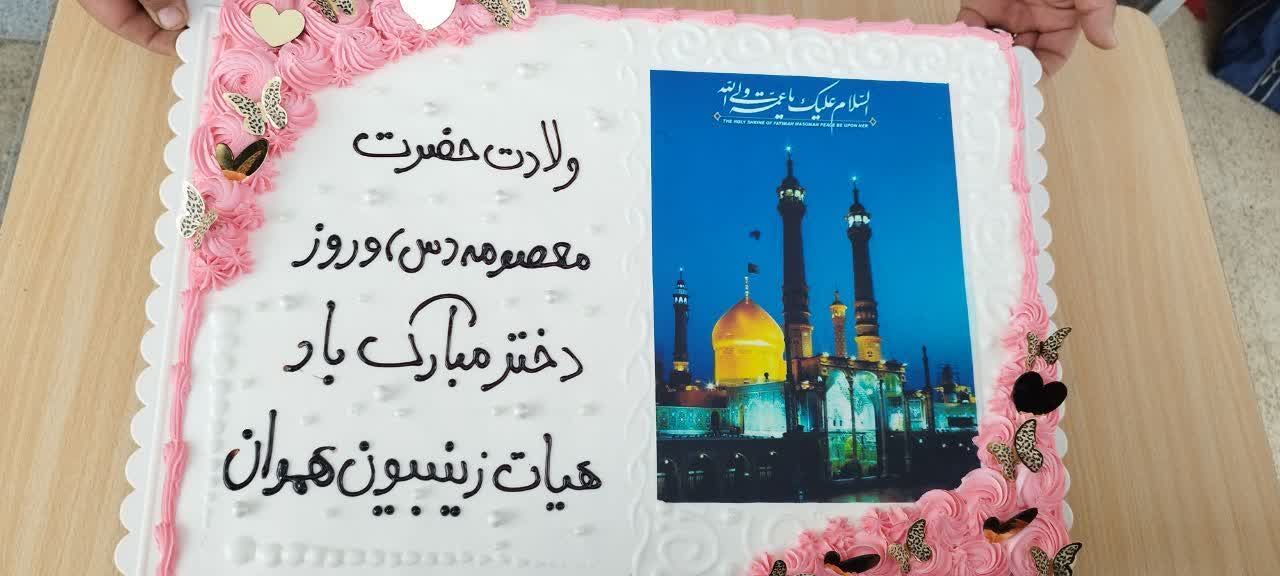 ولادت حضرت
معصومه (س) وروز
دختر مبارک باد
هیات زینبیون همدان
السلام علیک یا عمة ولی الله
THE HOLY SHRINE OF FATIMAH MASUMAH PEACE BE UPON HER